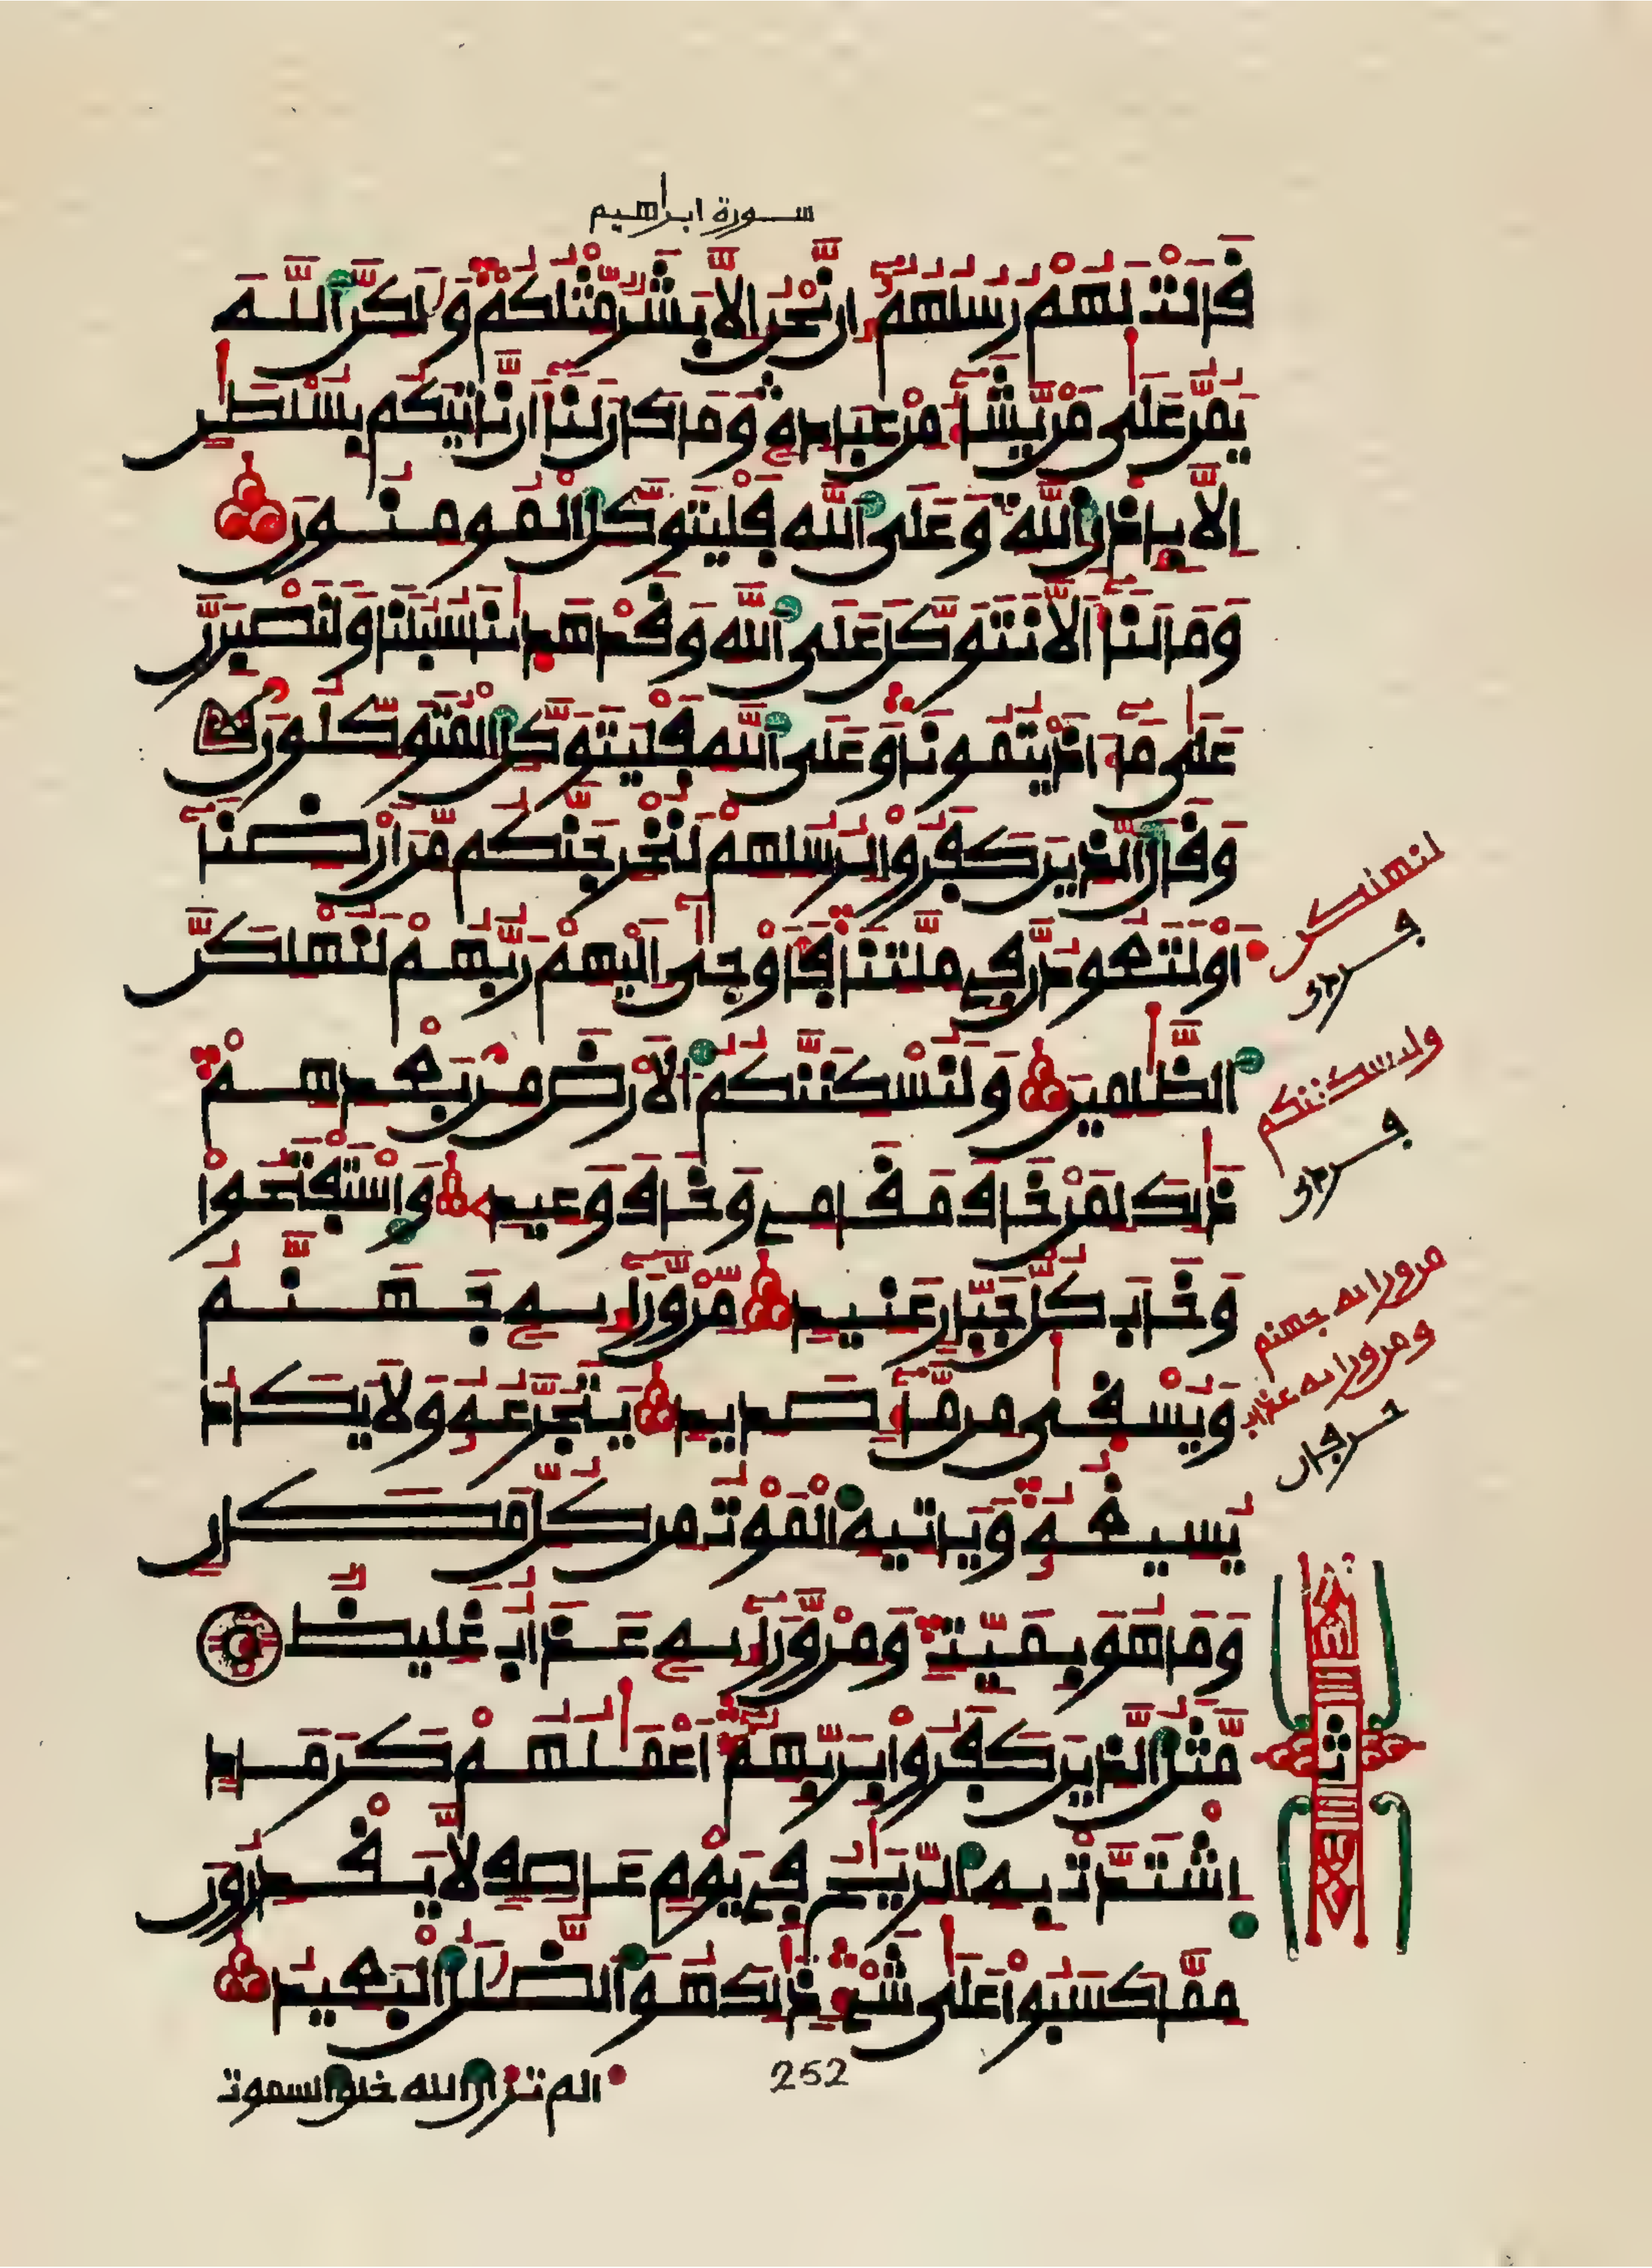 سورة ابراهيم
قَالَتْ لَهُمْ رُسُلُهُمُۥٓ إِن نَّحْنُ إِلَّا بَشَرٌ مِّثْلُكُمْ وَلَٰكِنَّ ٱللَّهَ
يَمُنُّ عَلَىٰ مَنْ يَّشَآءُ مِنْ عِبَادِهِۦ وَمَا كَانَ لَنَآ أَن نَّاتِيَكُم بِسُلْطَٰنٍ
اِلَّا بِإِذْنِ ٱللَّهِ وَعَلَى ٱللَّهِ فَلْيَتَوَكَّلِ ٱلْمُومِنُونَ
وَمَا لَنَآ أَلَّا نَتَوَكَّلَ عَلَى ٱللَّهِ وَقَدْ هَدَىٰنَا سُبُلَنَا وَلَنَصْبِرَنَّ
عَلَىٰ مَآ ءَاذَيْتُمُونَا وَعَلَى ٱللَّهِ فَلْيَتَوَكَّلِ ٱلْمُتَوَكِّلُونَ
وَقَالَ ٱلذِينَ كَفَرُوا لِرُسُلِهِمْ لَنُخْرِجَنَّكُم مِّنَ اَرْضِنَآ
أَوْ لَتَعُودُنَّ فِي مِلَّتِنَا فَأَوْحَىٰٓ إِلَيْهِمْ رَبُّهُمْ لَنُهْلِكَنَّ
ٱلظَّٰلِمِينَ وَلَنُسْكِنَنَّكُمُ ٱلْأَرْضَ مِنۢ بَعْدِهِمْ
ذَٰلِكَ لِمَنْ خَافَ مَقَامِي وَخَافَ وَعِيدِ وَٱسْتَفْتَحُوا
وَخَابَ كُلُّ جَبَّارٍ عَنِيدٍ مِّنْ وَّرَآئِهِۦ جَهَنَّمُ
وَيُسْقَىٰ مِن مَّآءٍ صَدِيدٍ يَتَجَرَّعُهُۥ وَلَا يَكَادُ
يُسِيغُهُۥ وَيَاتِيهِ ٱلْمَوْتُ مِن كُلِّ مَكَانٍ
وَمَا هُوَ بِمَيِّتٍ وَمِنْ وَّرَآئِهِۦ عَذَابٌ غَلِيظٌ
مَّثَلُ ٱلذِينَ كَفَرُوا بِرَبِّهِمُۥٓ أَعْمَٰلُهُمْ كَرَمَادٍ
اِشْتَدَّتْ بِهِ ٱلرِّيَٰحُ فِي يَوْمٍ عَاصِفٍ لَّا يَقْدِرُونَ
مِمَّا كَسَبُوا عَلَىٰ شَيْءٍ ذَٰلِكَ هُوَ ٱلضَّلَٰلُ ٱلْبَعِيدُ
لنهلكن
ولنسكننكم
من ورائه جهنم
ومن ورائه عذاب
حرفان
ث
252
الم تر ان الله خلق السموت